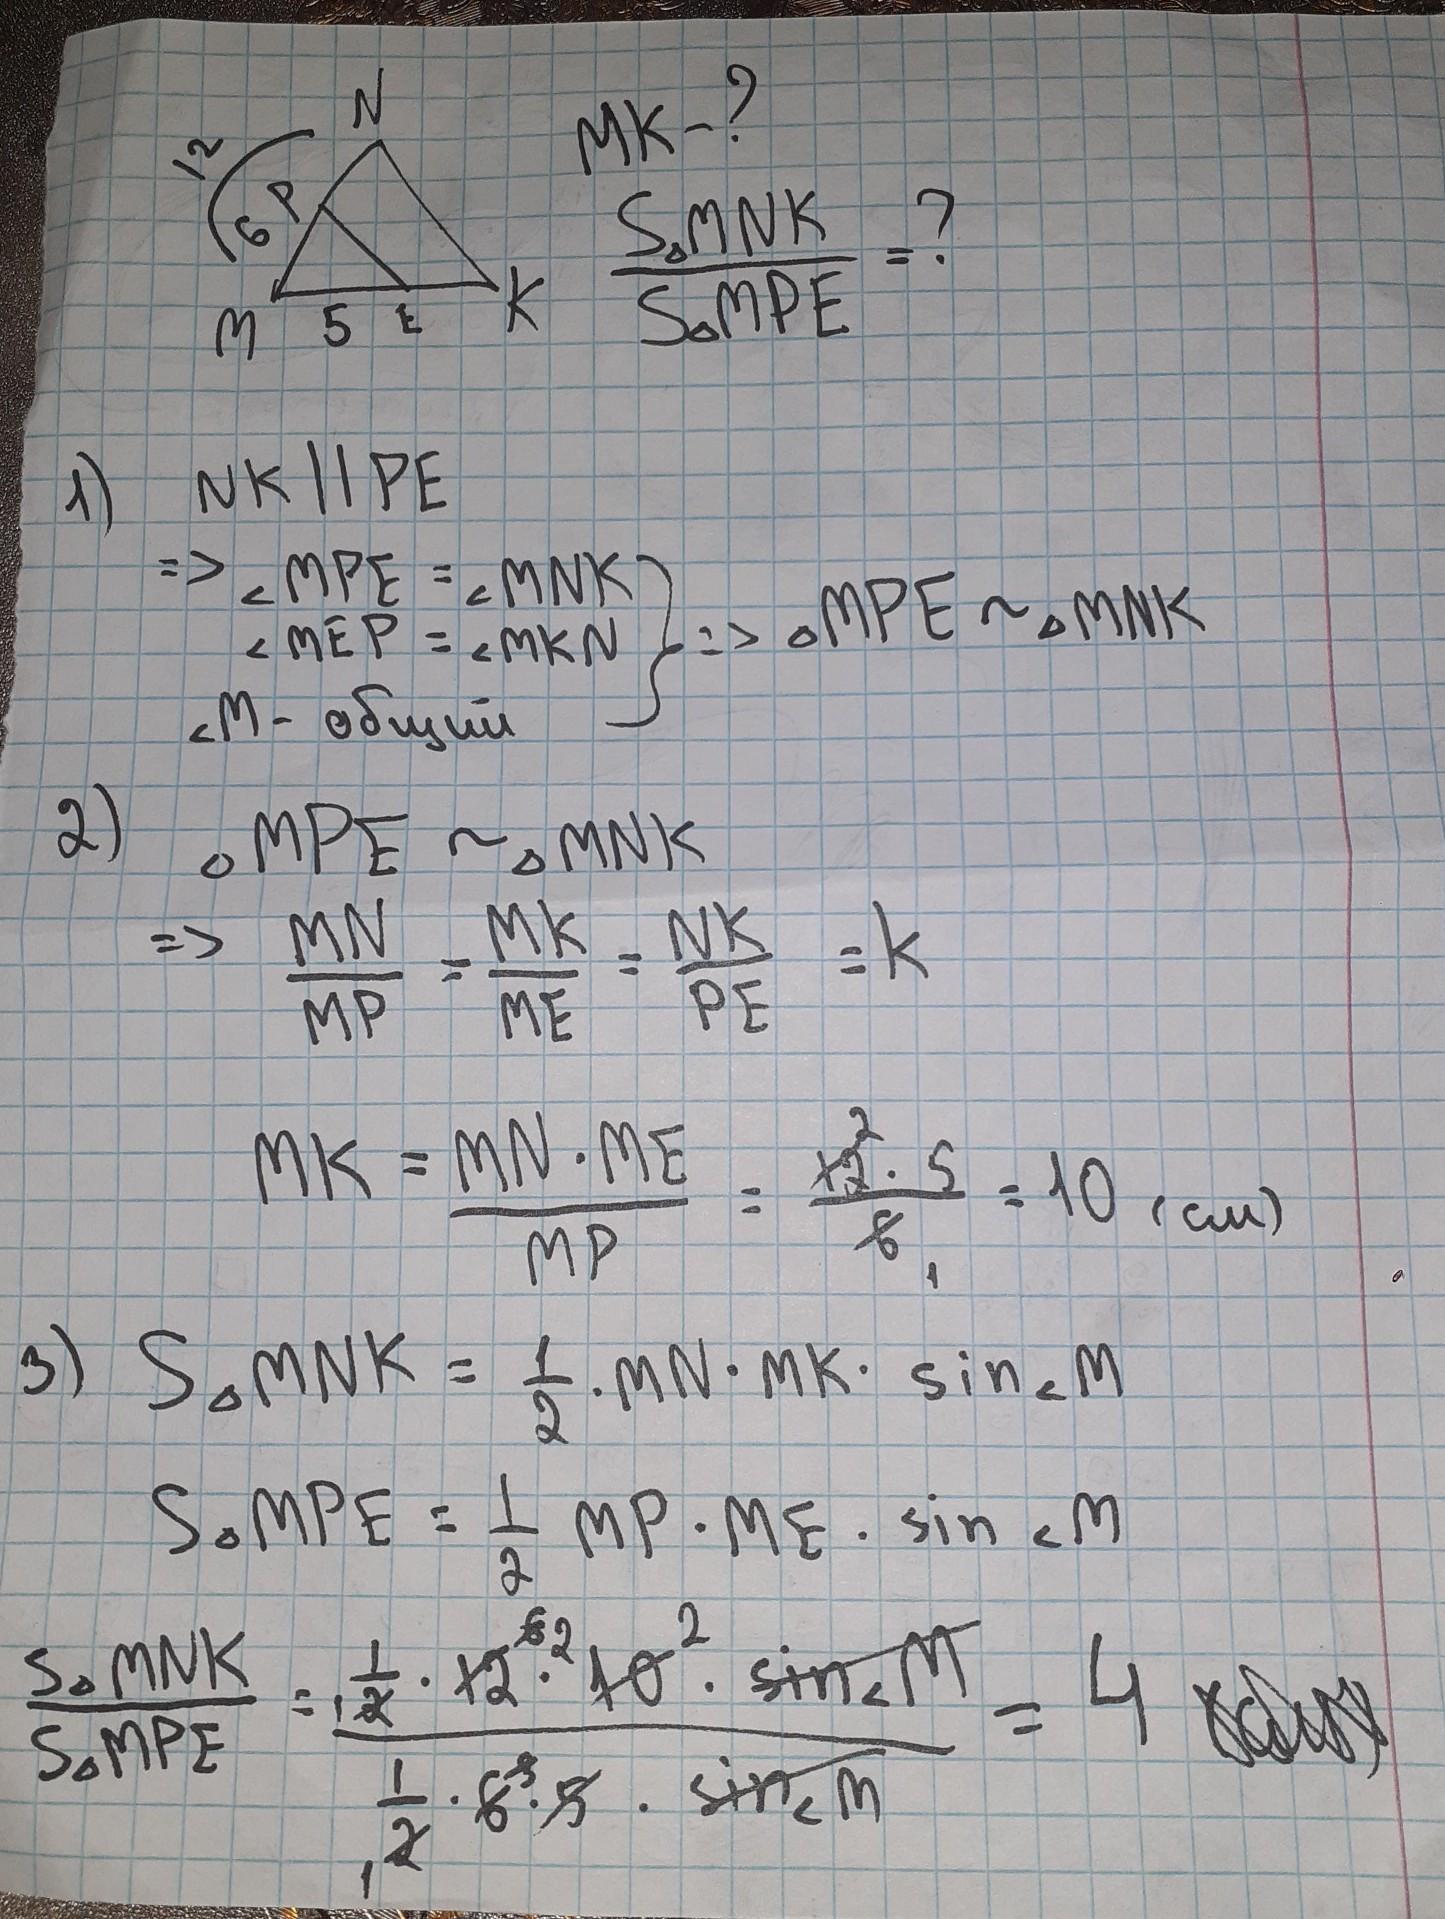 N
12
P
6
M 5 E K
MK - ?
S△MNK / S△MPE = ?
1) NK || PE
=> ∠MPE = ∠MNK
∠MEP = ∠MKN => △MPE ~ △MNK
∠M - общий
2) △MPE ~ △MNK
=> MN/MP = MK/ME = NK/PE = k
MK = MN·ME / MP = 12² · 5 / 6₁ = 10 (см)
3) S△MNK = 1/2 · MN · MK · sin∠M
S△MPE = 1/2 MP · ME · sin∠M
S△MNK / S△MPE = 1/2 · 12 · 10 · sin∠M / 1/2 · 6 · 5 · sin∠M = 4